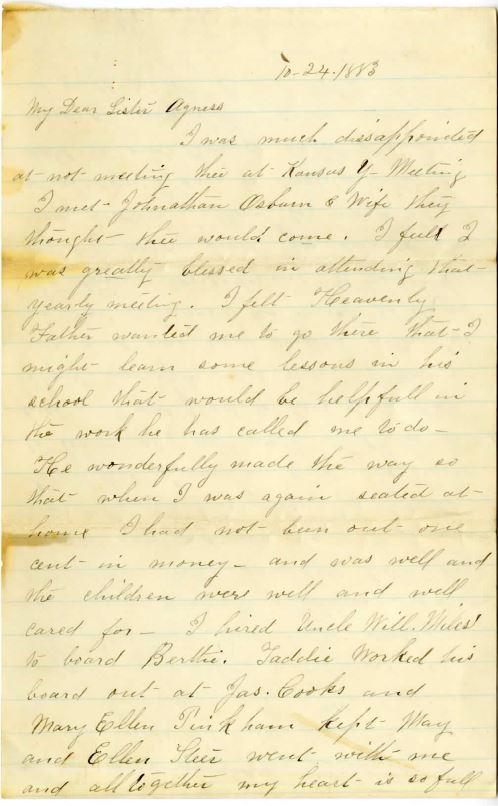 10-24-1883
My Dear Sister Agness
I was much dissappointed
at not meeting thee at Kansas Y- Meeting
I met Johnathan Osburn & Wife they
thought thee would come. I feel I
was greatly blessed in attending that
yearly meeting. I felt Heavenly
Father wanted me to go there that I
might learn some lessons in his
school that would be helpfull in
the work he has called me to do-
He wonderfully made the way so
that when I was again seated at
home I had not been out one
cent in money- and was well and
the children were well and well
cared for- I hired Uncle Will. Miles'
to board Berthie. Taddie worked his
board out at Jas. Cooks and
Mary Ellen Pinkham kept May
and Ellen Steer went with me
and all together my heart is so full